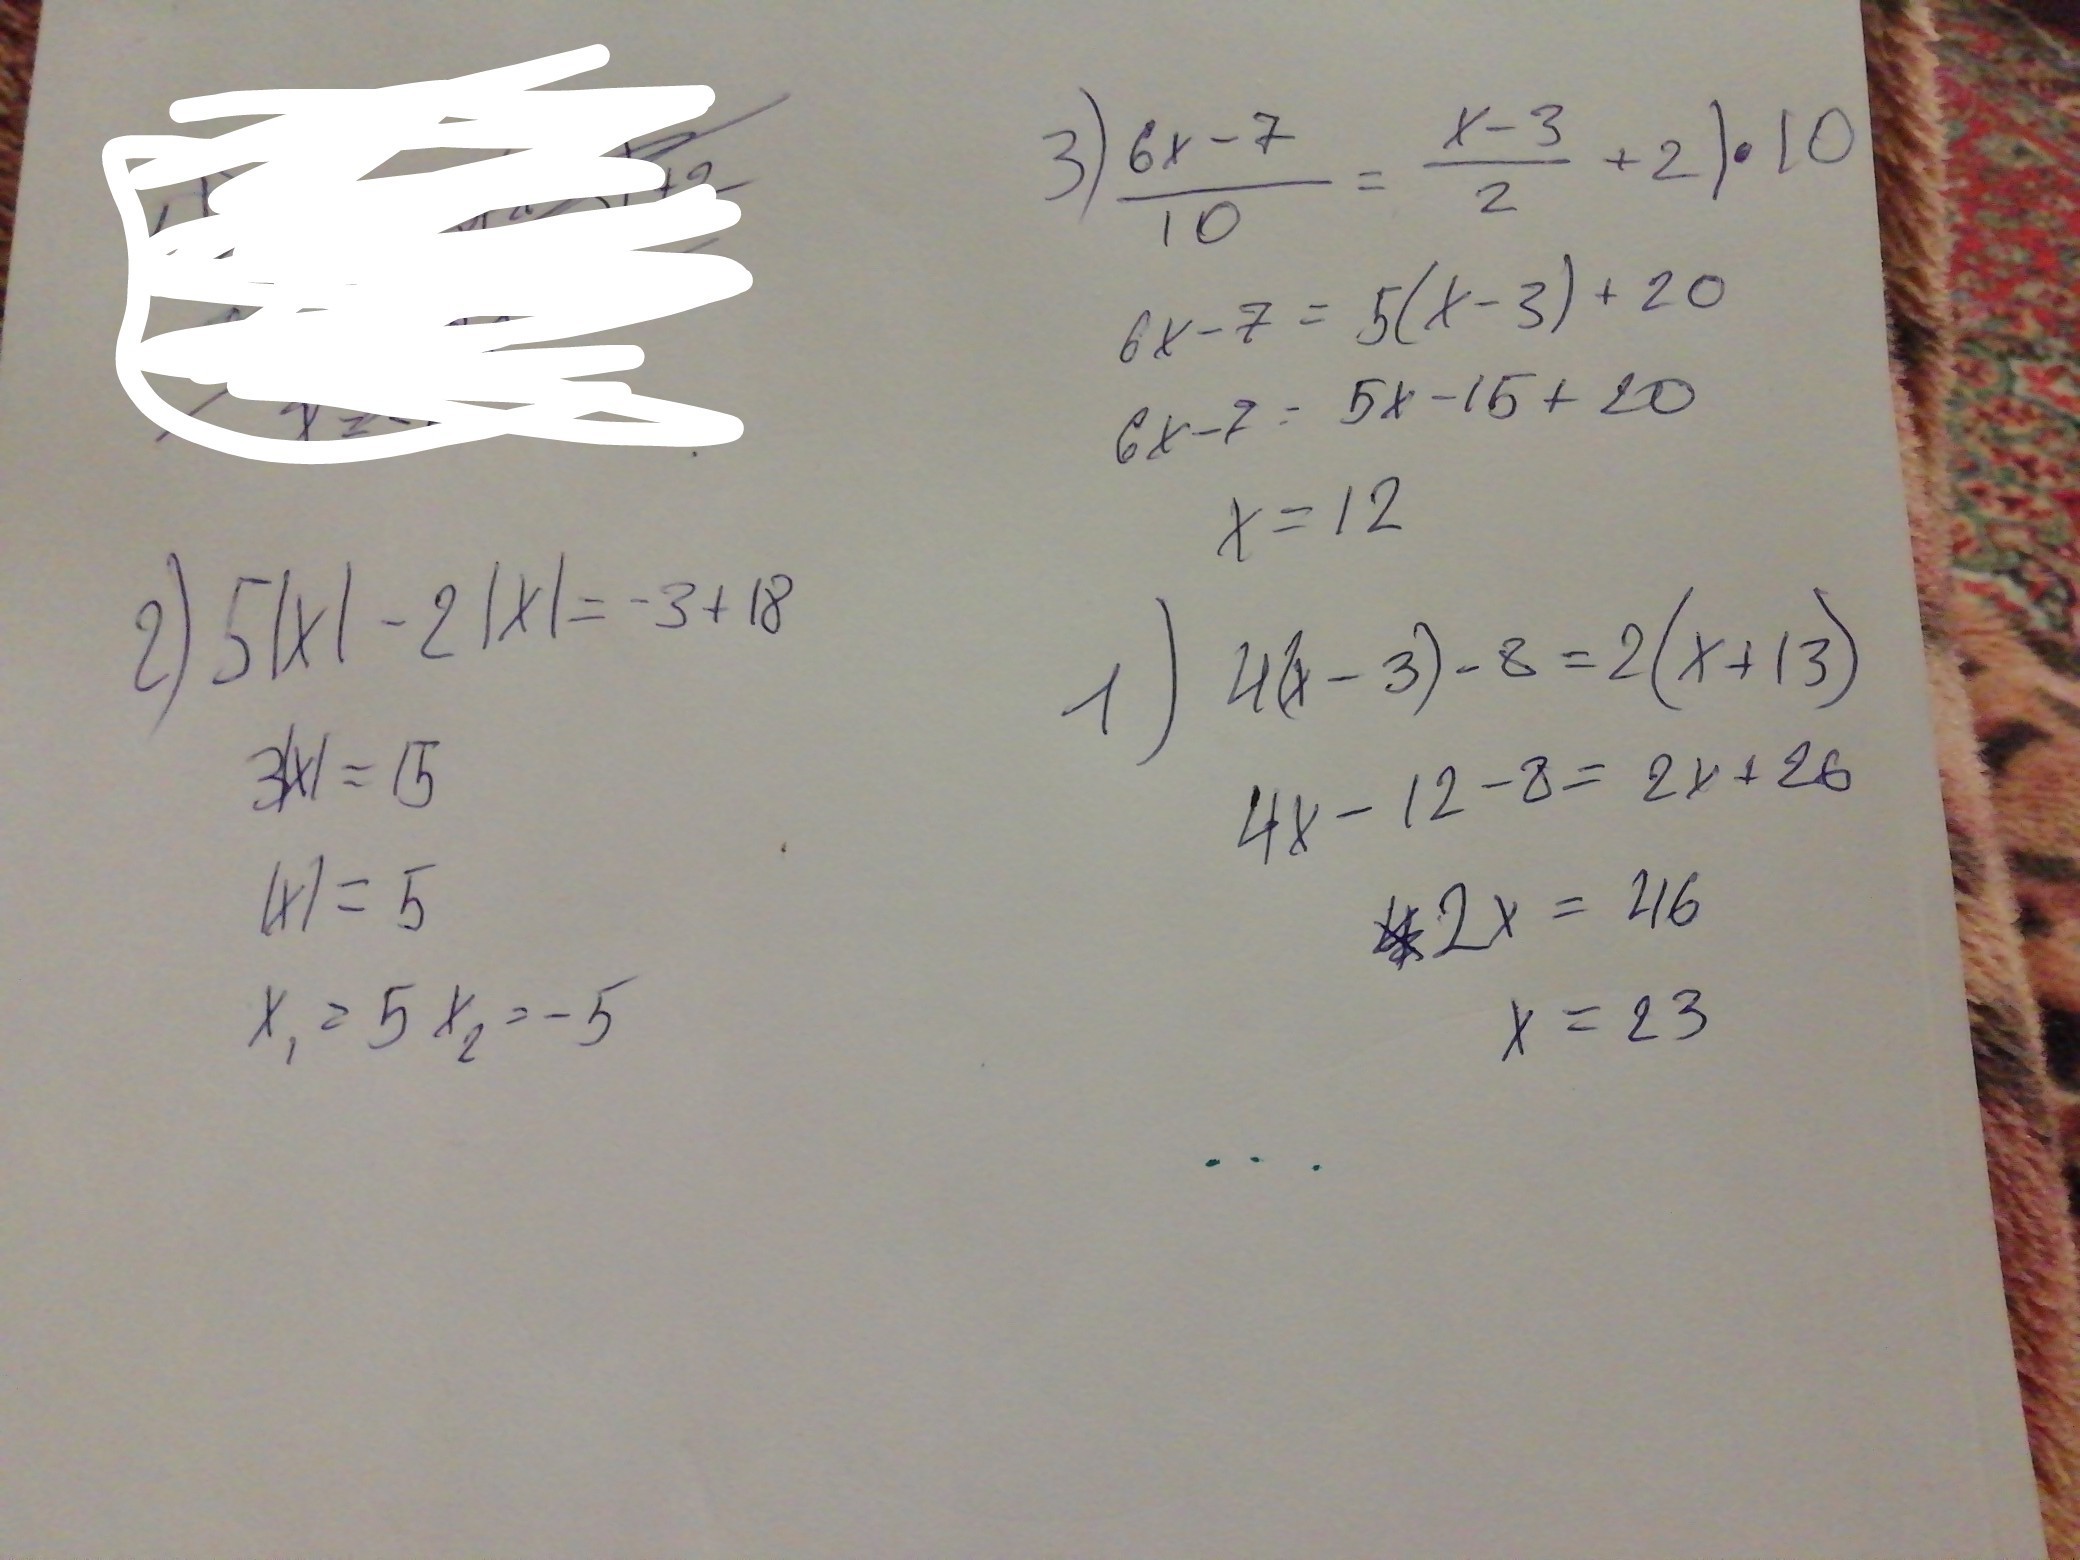 3) (6x-7)/10 = (x-3)/2 + 2) • 10
6x-7 = 5(x-3) + 20
6x-7 = 5x-15+20
x = 12
2) 5|x| - 2|x| = -3+18
3|x| = 15
|x| = 5
x₁ = 5 x₂ = -5
1) 4(x-3)-8=2(x+13)
4x-12-8= 2x+26
2x = 46
x = 23